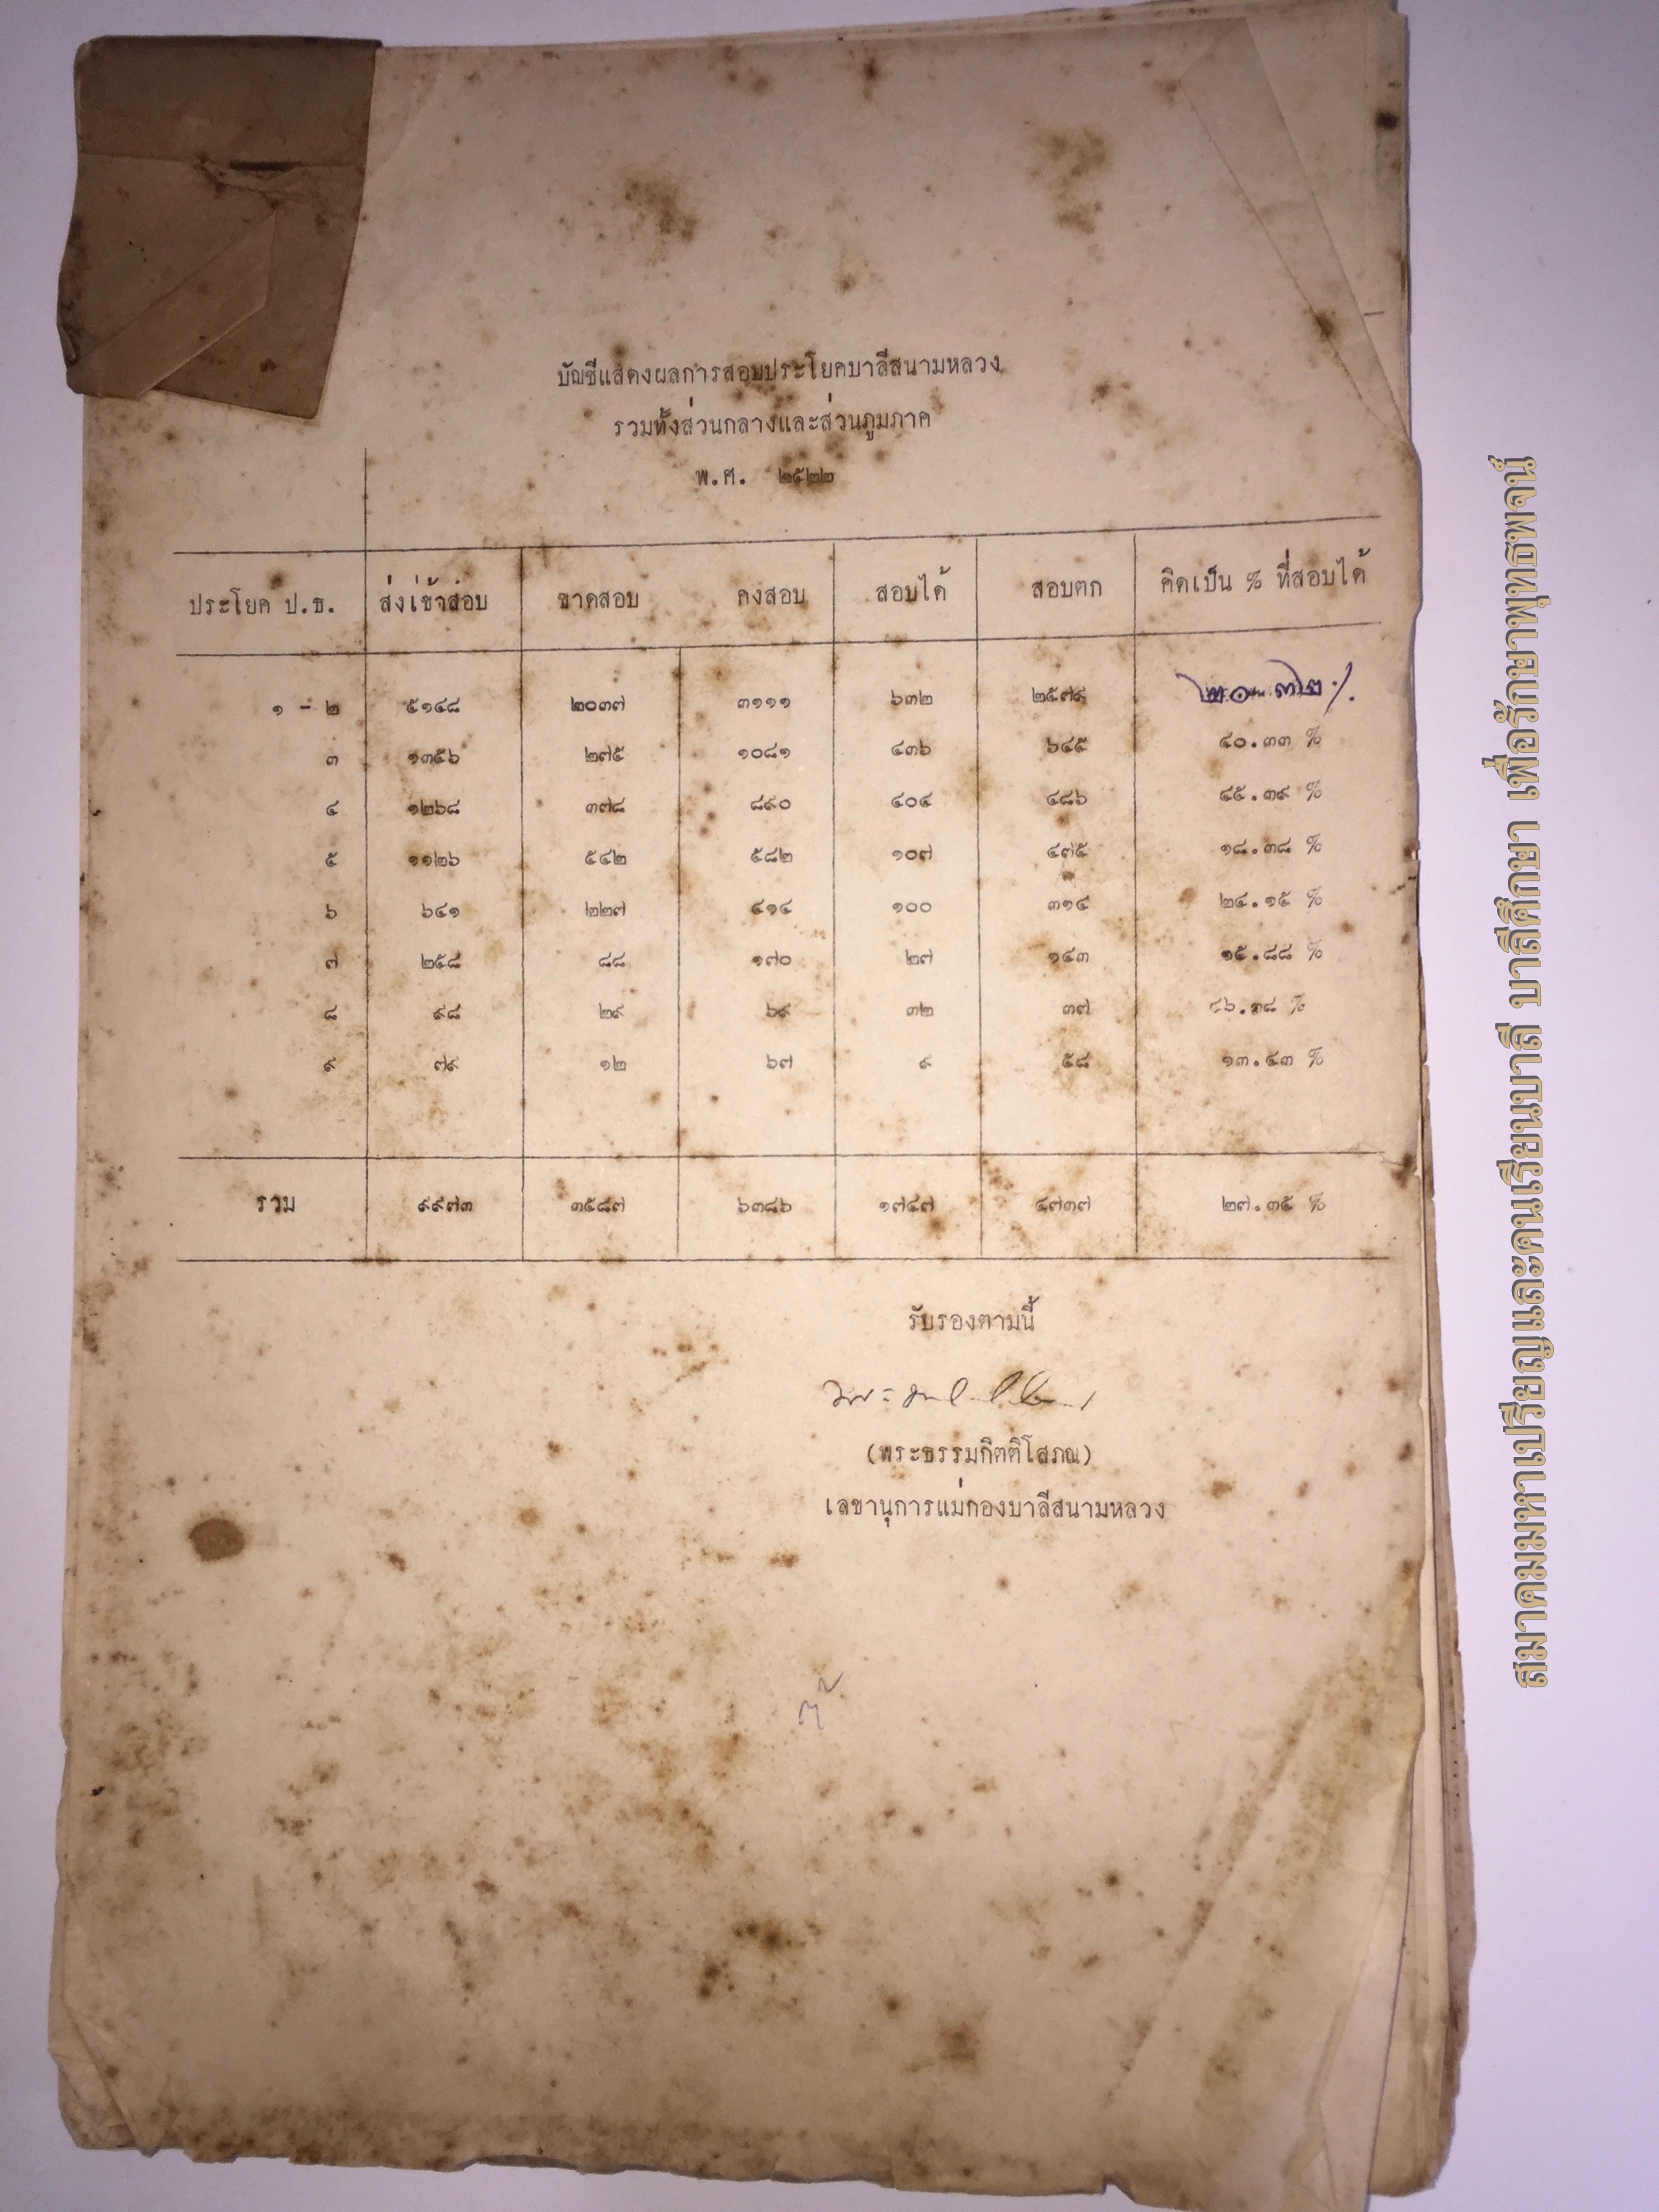 บัญชีแสดงผลการสอบประโยคบาลีสนามหลวง
รวมทั้งส่วนกลางและส่วนภูมภาค
พ.ศ. ๒๕๒๒
ประโยค ป.ธ. ส่งเข้าสอบ ขาดสอบ คงสอบ สอบได้ สอบตก คิดเป็น % ที่สอบได้
๑ - ๒ ๕๑๔๘ ๒๐๓๗ ๓๑๑๑ ๖๓๒ ๒๕๗๙ ๒๐.๓๒%
๓ ๑๓๕๖ ๒๗๕ ๑๐๘๑ ๔๓๖ ๖๔๕ ๔๐.๓๓ %
๔ ๑๒๖๘ ๓๗๘ ๘๙๐ ๔๐๔ ๔๘๖ ๔๕.๓๙ %
๕ ๑๑๒๖ ๕๔๒ ๕๘๒ ๑๐๗ ๔๗๕ ๑๘.๓๘ %
๖ ๖๔๑ ๒๒๗ ๔๑๔ ๑๐๐ ๓๑๔ ๒๔.๑๕ %
๗ ๒๕๘ ๘๘ ๑๗๐ ๒๗ ๑๔๓ ๑๕.๘๘ %
๘ ๙๘ ๒๙ ๖๙ ๓๒ ๓๗
๙ ๗๙ ๑๒ ๖๗ ๙ ๕๘ ๑๓.๔๓ %
รวม ๙๙๗๓ ๓๕๘๗ ๖๓๘๖ ๑๗๔๗ ๔๗๓๗ ๒๗.๓๕ %
รับรองตามนี้
(พระธรรมกิตติโสภณ)
เลขานุการแม่กองบาลีสนามหลวง
สมาคมมหาเปรียญและคนเรียนบาลี บาลีศึกษา เพื่อรักษาพุทธพจน์